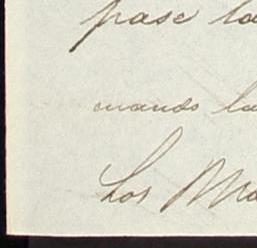 pase la
cuando la
Los Ma